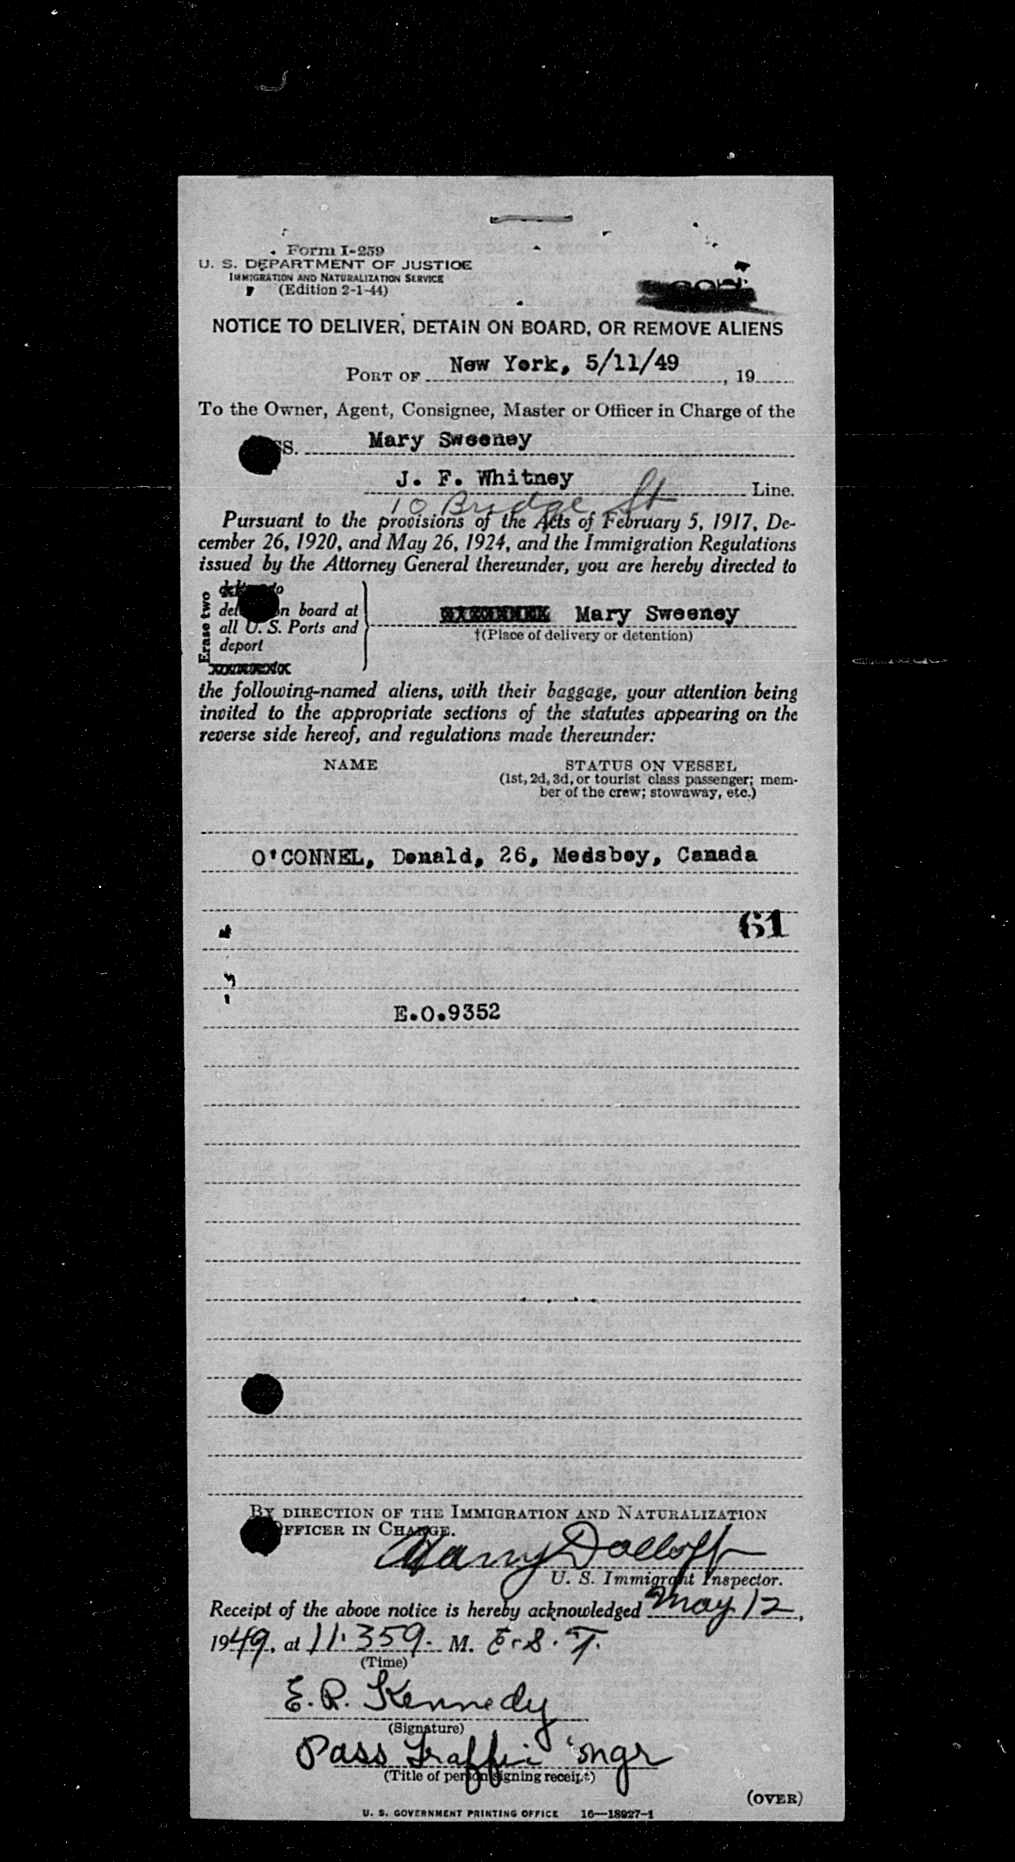 Form I-259
U. S. DEPARTMENT OF JUSTICE
IMMIGRATION AND NATURALIZATION SERVICE
(Edition 2-1-44)
NOTICE TO DELIVER, DETAIN ON BOARD, OR REMOVE ALIENS
PORT OF New York, 5/11/49, 19
To the Owner, Agent, Consignee, Master or Officer in Charge of the
SS. Mary Sweeney
J. F. Whitney Line.
10 Bridge St
Pursuant to the provisions of the Acts of February 5, 1917, De-
cember 26, 1920, and May 26, 1924, and the Immigration Regulations
issued by the Attorney General thereunder, you are hereby directed to
Erase two
on board at
all U. S. Ports and
deport
Mary Sweeney
†(Place of delivery or detention)
the following-named aliens, with their baggage, your attention being
invited to the appropriate sections of the statutes appearing on the
reverse side hereof, and regulations made thereunder:
NAME STATUS ON VESSEL
(1st, 2d, 3d, or tourist class passenger; mem-
ber of the crew; stowaway, etc.)
O'CONNEL, Donald, 26, Medsboy, Canada
61
E.O.9352
BY DIRECTION OF THE IMMIGRATION AND NATURALIZATION
OFFICER IN CHARGE.
Harry Dolloff
U. S. Immigrant Inspector.
Receipt of the above notice is hereby acknowledged May 12,
1949, at 11:35 M. E.S.T.
(Time)
E. R. Kennedy
(Signature)
Pass Traffic mgr
(Title of person signing receipt)
(OVER)
U. S. GOVERNMENT PRINTING OFFICE 16—18927-1